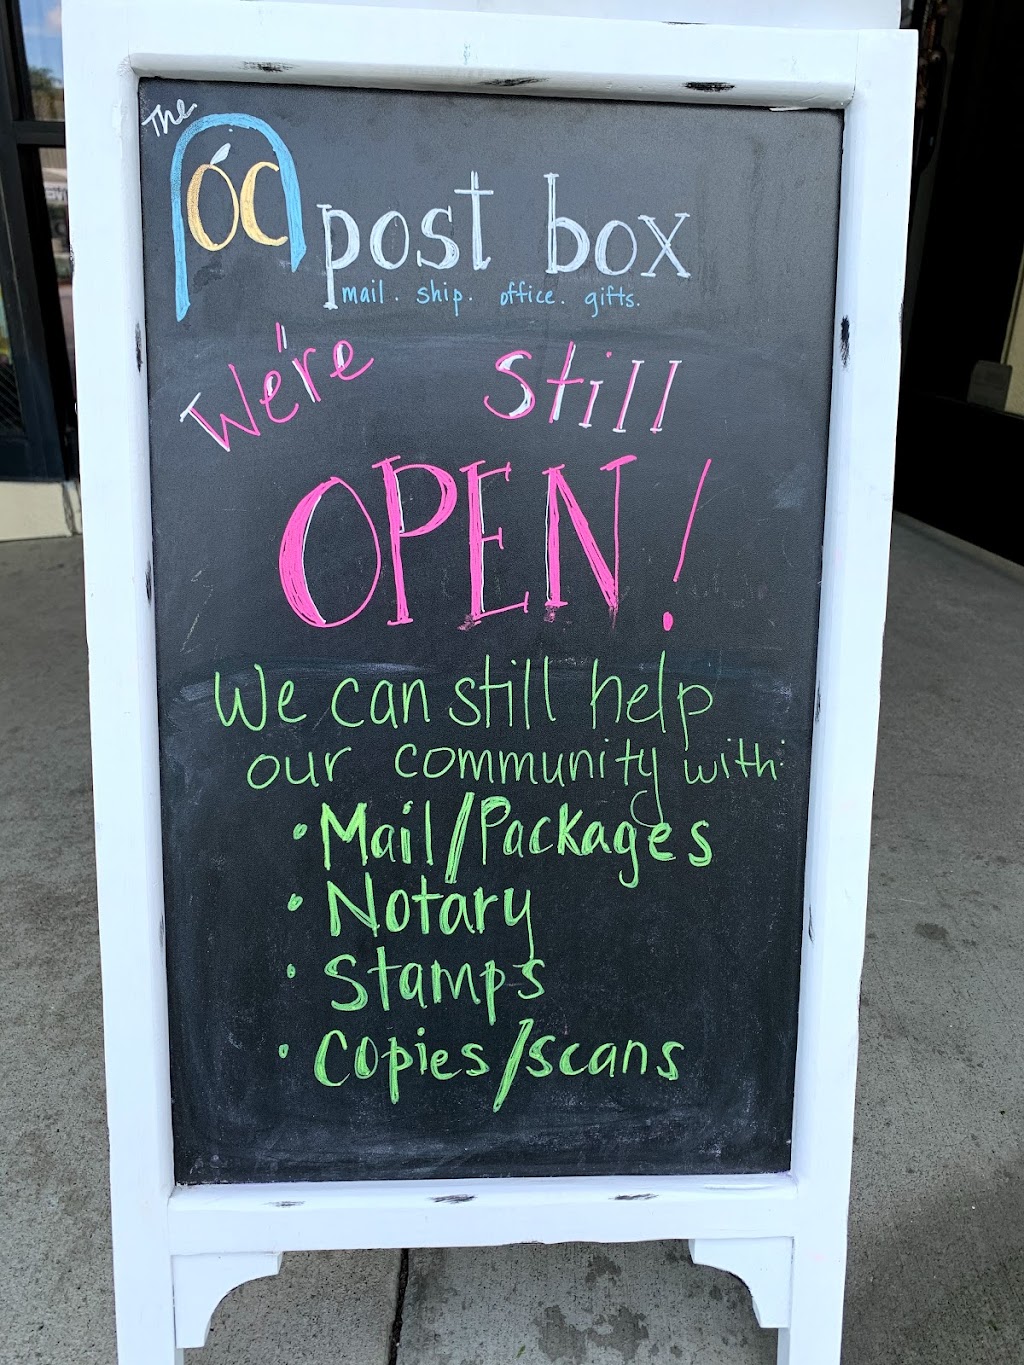 The
OC post box
mail. ship. office. gifts.
We're still
OPEN!
We can still help
our community with:
• Mail/Packages
• Notary
• Stamps
• Copies/scans